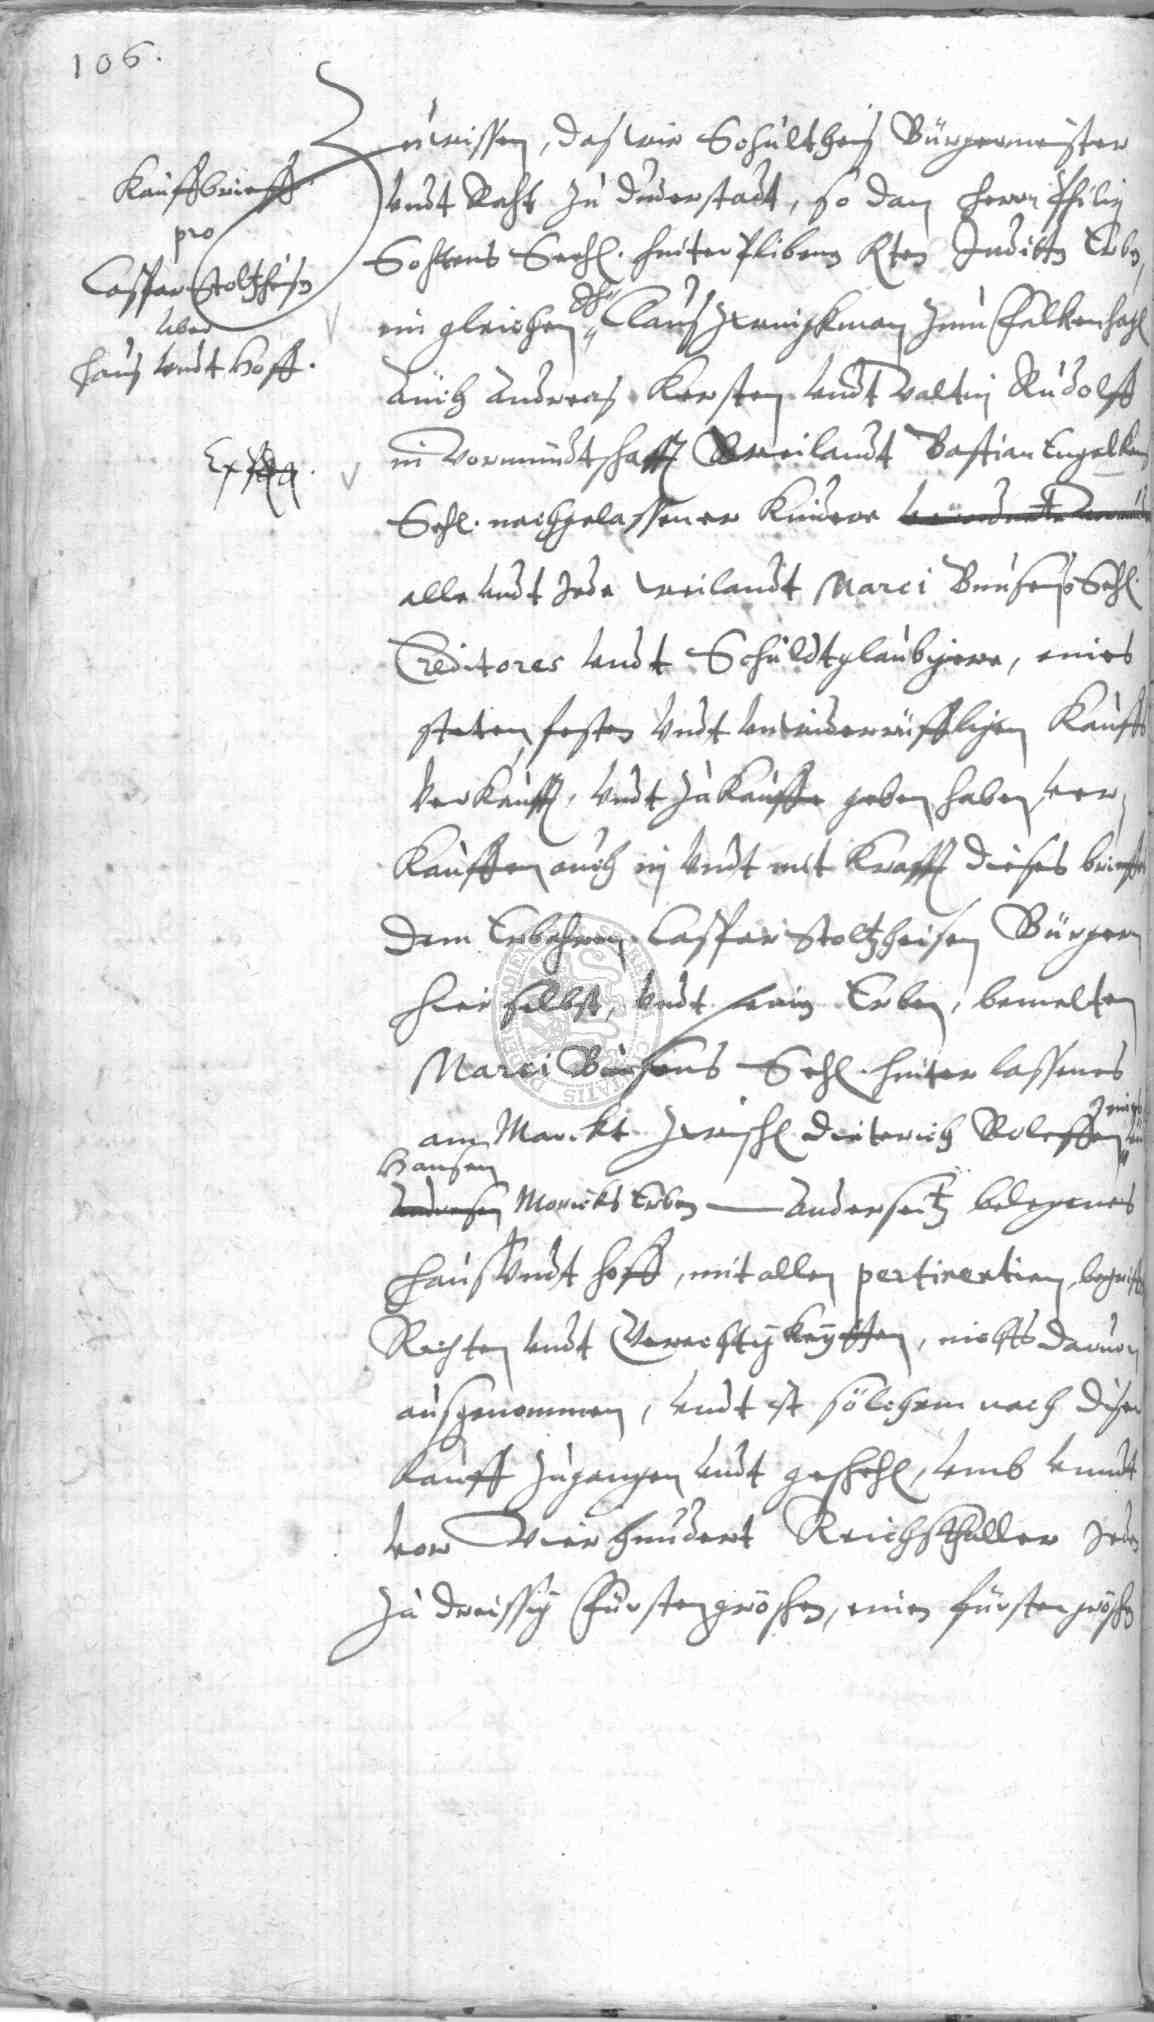 106.
Kauffbrieff
pro
Caspar Stoltzheisen
uber
Hauß undt Hoff.
Zu wissen, daß wir Schultheiß Bürgermeister
undt Raht zu Duderstadt, so dan Herrn Philip
Seehl. hinterplibene Erben,
ein gleichen Clauß zum Falkenhagen
auch Andreas Kersten undt Valtin Rudolff
in Vormundtschafft Weilandt Bastian Engelken
Sehl. nachgelassener Kindere
alle undt Jede weilandt Marci Sehl.
Creditores undt Schuldtglaubigere, eines
steten, festen undt unwiderrüfflichen Kauffs
verkaufft, undt zu Kauffe geben haben, ver
Kauffen auch in undt mit Krafft dieses brieffs
dem Erbahren Caspar Stoltzheisen Bürgern
hier selbst, undt sein Erben, bemelten
Marci Sehl. hinterlassenes
am Marckt zwischen Dieterich Roleffen
Hansen
Moricks Erben anderseitz belegenes
Hauß undt Hoff, mit allen pertinentien
Rechten undt Gerechtigkeytten, nichts davon
außgenommen, undt ist solchem nach diser
Kauff zugangen undt geschehen, umb unndt
vor Vierhundert Reichsthaller Jeden
zu dreissig Fürstengroschen, einen fürstengroschen